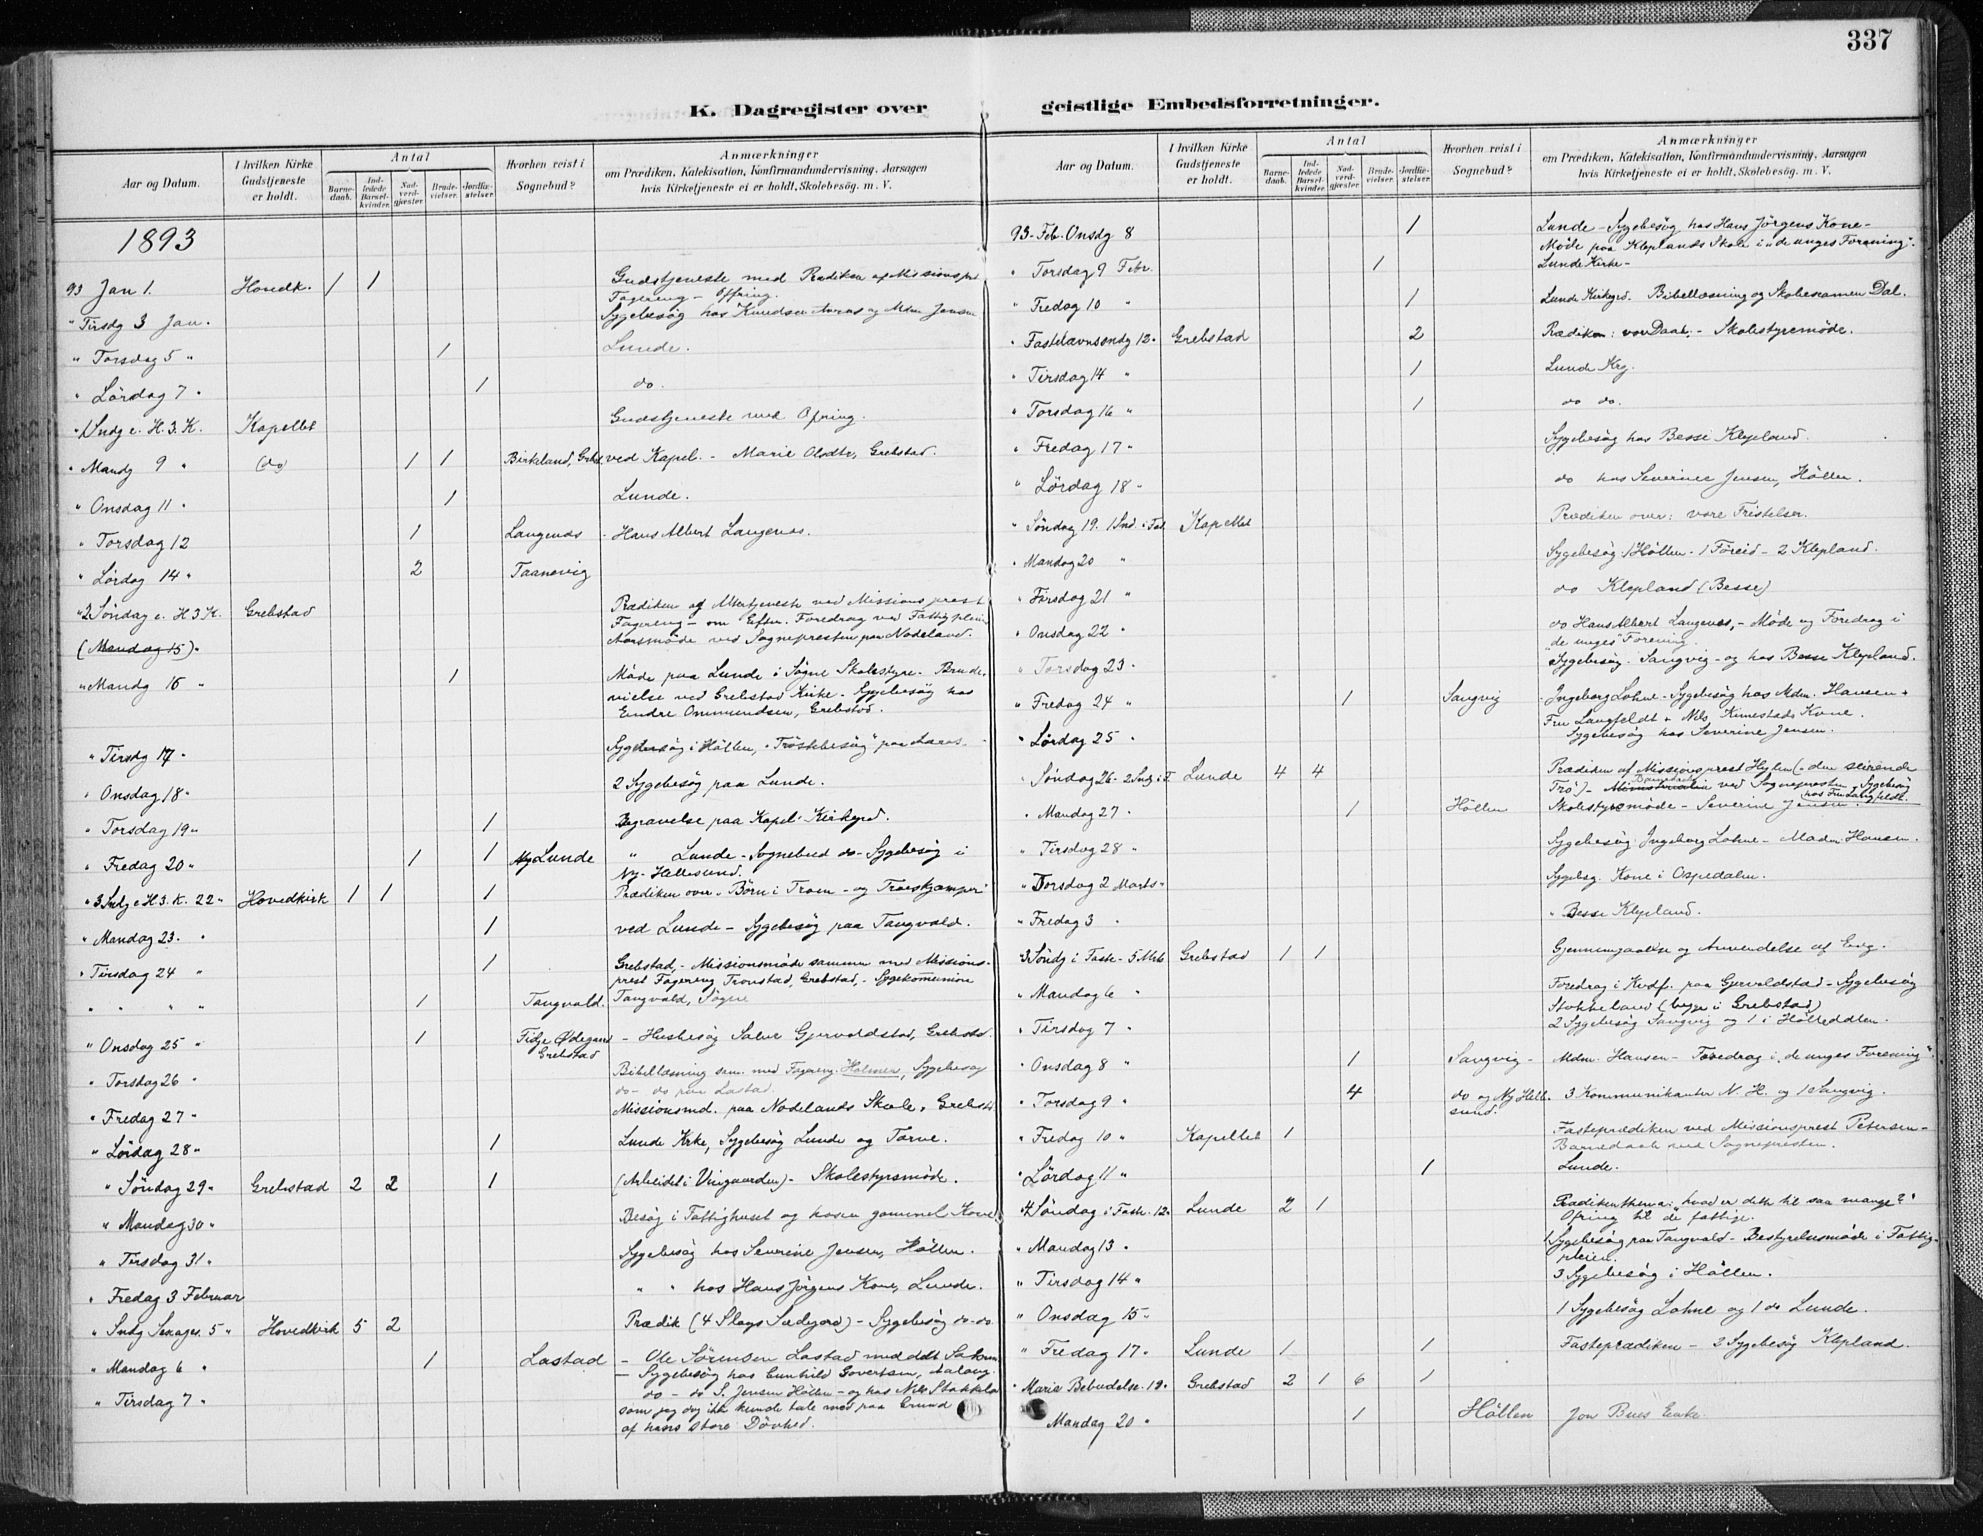 337
K. Dagregister over geistlige Embedsforretninger.
Aar og Datum.
I hvilken Kirke Gudstjeneste er holdt.
Antal
Barnedaab.
Indledede Barselkvinder.
Nadverdgjæster.
Brudevielser.
Jordfæstelser.
Hvorhen reist i Sognebud?
Anmærkninger
om Prædiken, Katekisation, Konfirmandundervisning, Aarsagen
hvis Kirketjeneste ei er holdt, Skolebesøg. m. V.
1893
93 Jan 1. Hovedk. 1 1 Gudstjeneste med Prædiken af Missionsprst
Fagereng - Offring.
" Tirsdg 3 Jan. Sygebesøg hos Knudsen Aaros og Mdm Jensen
" Torsdag 5 " 1 Lunde.
" Lördag 7 " 1 do.
" 1 Sndg e. H. 3. K. Kapellet Gudstjeneste med Ofring.
" Mandg 9 " (do) 1 1 Birkeland, Grebst. ved Kapel. - Marie Grebstad.
" Onsdag 11 " 1 Lunde.
" Torsdag 12 1 Langenæs - Hans Albert Langenæs.
" Lördag 14 " 2 Taanevig
" 2 Söndag e. H 3 K. Grebstad Prædiken og Altertjeneste ved Missionsprest
Fagereng - om Efter. Foredrag ved Fattigpleie
(Mandag 15) " Aarsmøde ved Sognepresten paa Nodeland.
" Mandg 16 " 1 Møde paa Lunde i Søgne Skolestyre. Brude-
vielse ved Grebstad Kirke. Sygebesøg hos
Endre Ommundsen, Grebstad.
" Tirsdg 17 " Sygebesøg i Höllen, "Tröstebesøg" paa Aaros.
" Onsdag 18 " 2 Sygebesøg paa Lunde.
" Torsdag 19 " 1 Begravelse paa Kapel Kirkegrd.
" Fredag 20 " 1 1 Lunde " Lunde - Sognebud do - Sygebesøg i
Ny-Hellesund.
" 3 Sndg e H. 3. K. 22 " Hovedkirk 1 1 1 Prædiken over: Børn i Troen - og Troeskjæmper
" Mandag 23. " 1 ved Lunde - Sygebesøg paa Tangvald.
" Tirsdag 24 " 1 Grebstad, - Missionsmøde sammen med Missions-
prest Fagereng Tronstad, Grebstad, - Sygekomunion
" " " " 1 Tangvald. Tangvald, Søgne
" Onsdag 25 " 1 Tidje Ødegaard Grebstad - Husbesøg Salve Gjervoldstad, Grebstad.
" Torsdag 26 " Bibellæsning sam. med Fagereng. Holmen, Sygebesøg
do - do paa Lastad
" Fredag 27 " Missionsmd. paa Nodelands Skole, Grebst.
" Lördag 28 " 1 Lunde Krke, Sygebesøg Lunde og Torve.
" Söndag 29 " Grebstad 2 2 1 (Arbeidet i Vingaarden) - Skolestyrsmøde.
" Mandag 30 " Besøg i Fattighuset og hos en gammel Kone
" Tirsdag 31 " Sygebesøg hos Severine Jensen, Höllen.
" Fredag 3 Februar " " hos Hans Jörgens Kone, Lunde.
" Sndg Sexages. 5 " Hovedkirk 5 2 Prædik (4 Slags Sædejord) - Sygebesøg do - do.
" Mandag 6 " 1 Lastad - Ole Sörensen Lastad meddelt Sakram
- Sygebesøg hos Gunhild Govertsen,
" Tirsdag 7 " do - do S. Jensen Höllen - og hos Nils Stokkelan
som jeg dog ikk kunde tale med paa Grund
af hans store Dövhed.
Aar og Datum.
I hvilken Kirke Gudstjeneste er holdt.
Antal
Barnedaab.
Indledede Barselkvinder.
Nadverdgjæster.
Brudevielser.
Jordfæstelser.
Hvorhen reist i Sognebud?
Anmærkninger
om Prædiken, Katekisation, Konfirmandundervisning, Aarsagen
hvis Kirketjeneste ei er holdt, Skolebesøg. m. V.
93. Feb. Onsdg 8 1 Lunde - Sygebesøg hos Hans Jörgens Kone -
Møde paa Kleplands Skole i "de unges Forening".
" Torsdag 9 Febr. 1 Lunde Kirke -
" Fredag 10 " 1 Lunde Kirkegrd. Bibellæsning og Skoleexamen Dal.
" Fastelavnssndg 12 " Grebstad 2 Prædiken: vor Daab. - Skolestyremøde.
" Tirsdag 14 " 1 Lunde Krg.
" Torsdag 16 " 1 do do.
" Fredag 17 " Sygebesøg hos Besse Klepland.
" Lördag 18 " do hos Severine Jensen, Höllen.
" Söndag 19. 1 Snd. i Fast. Kapellet Prædiken over: vore Fristelser.
" Mandag 20 " Sygebesøg 1 Höllen - 1 Föreid - 2 Klepland.
" Tirsdag 21 " do Klepland (Besse)
" Onsdag 22 " do Hans Albert Langenæs, - Møde og Foredrag i
"de unges" Forening.
" Torsdag 23 " Sygebesøg. Sangvig - og hos Besse Klepland.
" Fredag 24 " 1 Sangvig - Ingeborg Lohne - Sygebesøg hos Mdm. Hansen +
Fru Langfeldt + Nils Kone.
" Lördag 25 " Sygebesøg hos Severine Jensen.
" Söndag 26 - 2 Sndg i F. Lunde 4 4 Prædiken af Missionsprest Heglen (: den seirende
Tro) - Barnedaab ved Sognepresten - Sygebesøg
hos Fru Langfeldt.
" Mandag 27 " 1 Höllen Skolestyremøde - Severine Jensen.
" Tirsdag 28 " Sygebesøg: Ingeborg Lohne - Madm Hansen.
" Torsdag 2 Marts " Sygebsg. Kone i Ospedalen.
" Fredag 3 " " Besse Klepland.
" 3 Søndg i Faste - 5 Mrts Grebstad 1 1 Gjennemgaaelse og Anvendelse af Evg.
" Mandag 6 " Foredrag i Kvdf. paa Gjervoldstad - Sygebesøg
Stokkeland (begge i Grebstad)
" Tirsdag 7 " 2 Sygebesøg Sangvig og 1 i Hölleddlen.
" Onsdag 8 " 1 Sangvig - Mdm. Hansen - Foredrag i "de unges Forening".
" Torsdag 9 " 4 do og Ny Hellesund. 3 Kommunikanter N. H. og 1 Sangvig.
" Fredag 10 " Kapellet 1 Fasteprædiken ved Missionsprest Petersen -
Barnedaab ved Sognepresten.
" Lördag 11 " 1 Lunde.
" 4 Söndag i Faste. 12 " Lunde 2 1 Prædikenthema: "hvad er dette til saa mange?"
Ofring til de fattige.
" Mandag 13 " Sygebesøg paa Tangvald - Bestyrelsesmøde i Fattig-
pleien.
" Tirsdag 14 " 3 Sygebesøg i Höllen.
" Onsdag 15 " 1 Sygebesøg Lohne og 1 do Lunde.
" Fredag 17 " Lunde 1 1 Fasteprædiken - 2 Sygebesøg Klepland.
" Mariæ Bebudelse. 19 " Grebstad 2 1 6 1
Mandag 20 " 1 Höllen Jon Bues Enke.